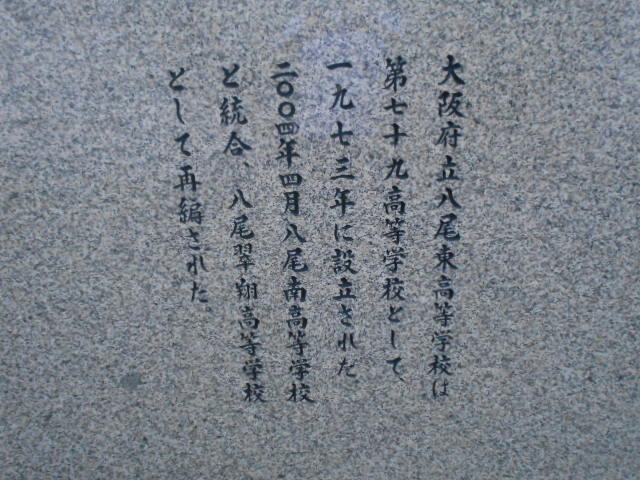 大阪府立八尾東高等学校は
第七十九高等学校として、
一九七三年に設立された
二〇〇四年四月八尾南高等学校
と統合、八尾翠翔高等学校
として再編された。